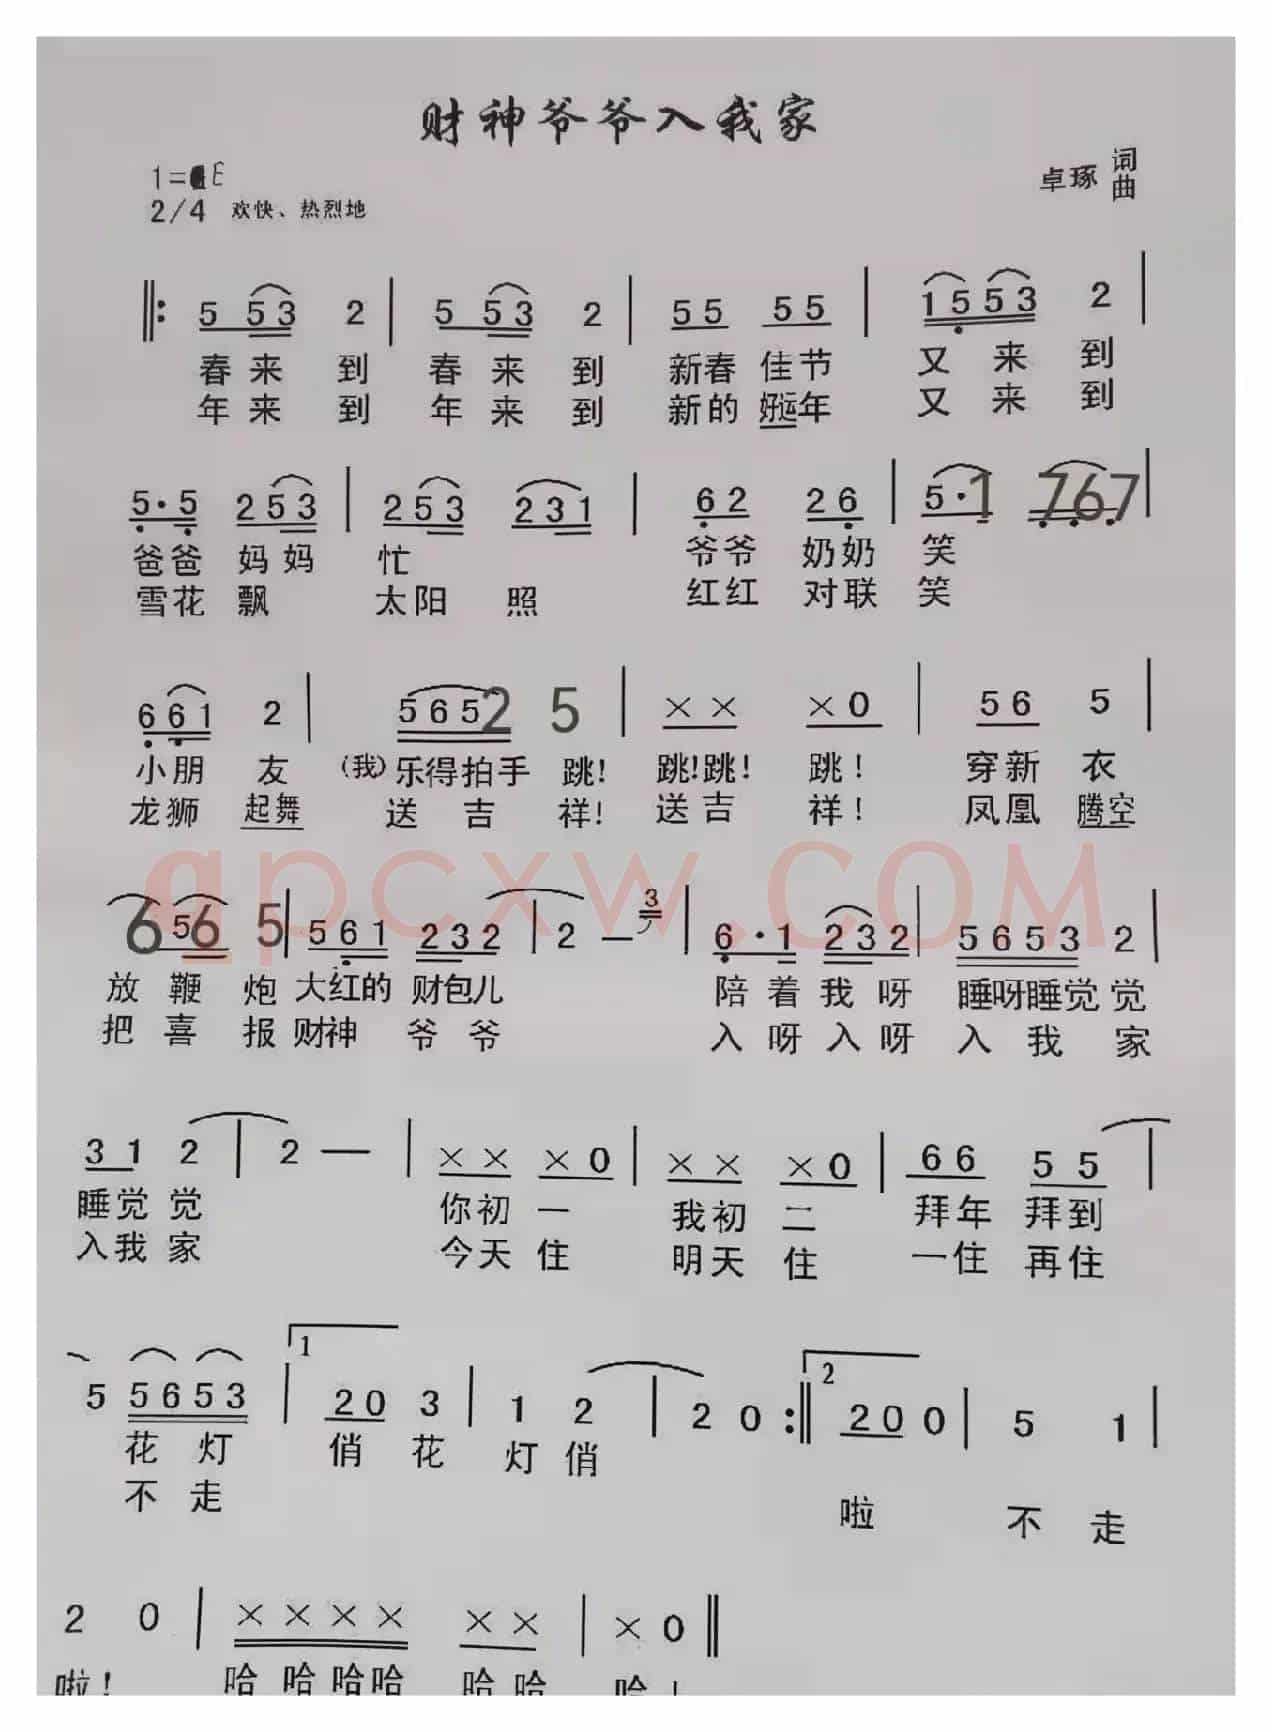 财神爷爷入我家
1=E
卓琢 词曲
2/4 欢快、热烈地
5 5 3 2 | 5 5 3 2 | 5 5 5 5 | 1 5 5 3 2 |
春来 到 春来 到 新春 佳节 又 来 到
年来 到 年来 到 新的 好运年 又 来 到
5·5 2 5 3 | 2 5 3 2 3 1 | 6 2 2 6 | 5·1 7 6 7 |
爸爸 妈妈 忙 爷爷 奶奶 笑
雪花 飘 太阳 照 红红 对联 笑
6 6 1 2 | 5 6 5 2 5 | × × × 0 | 5 6 5 |
小朋 友 (我)乐得拍手 跳! 跳!跳! 跳! 穿新 衣
龙狮 起舞 送 吉 祥! 送吉 祥! 凤凰 腾空
gpcxw.COM
6 5 6 5 | 5 6 1 2 3 2 | 2 — 3 | 6·1 2 3 2 | 5 6 5 3 2 |
放 鞭 炮 大红的 财包儿 陪着我呀 睡呀睡觉觉
把 喜 报 财神 爷 爷 入呀入呀 入 我 家
3 1 2 | 2 — | × × × 0 | × × × 0 | 6 6 5 5 |
睡觉觉 你初 一 我初 二 拜年 拜到
入我家 今天 住 明天 住 一住 再住
5 5 6 5 3 | 1 2 0 3 | 1 2 | 2 0 :‖ 2 2 0 0 | 5 1 |
花 灯 俏 花 灯 俏
不 走 啦 不 走
2 0 | × × × × × × | × 0 ‖
啦! 哈 哈 哈哈 哈 哈 哈!